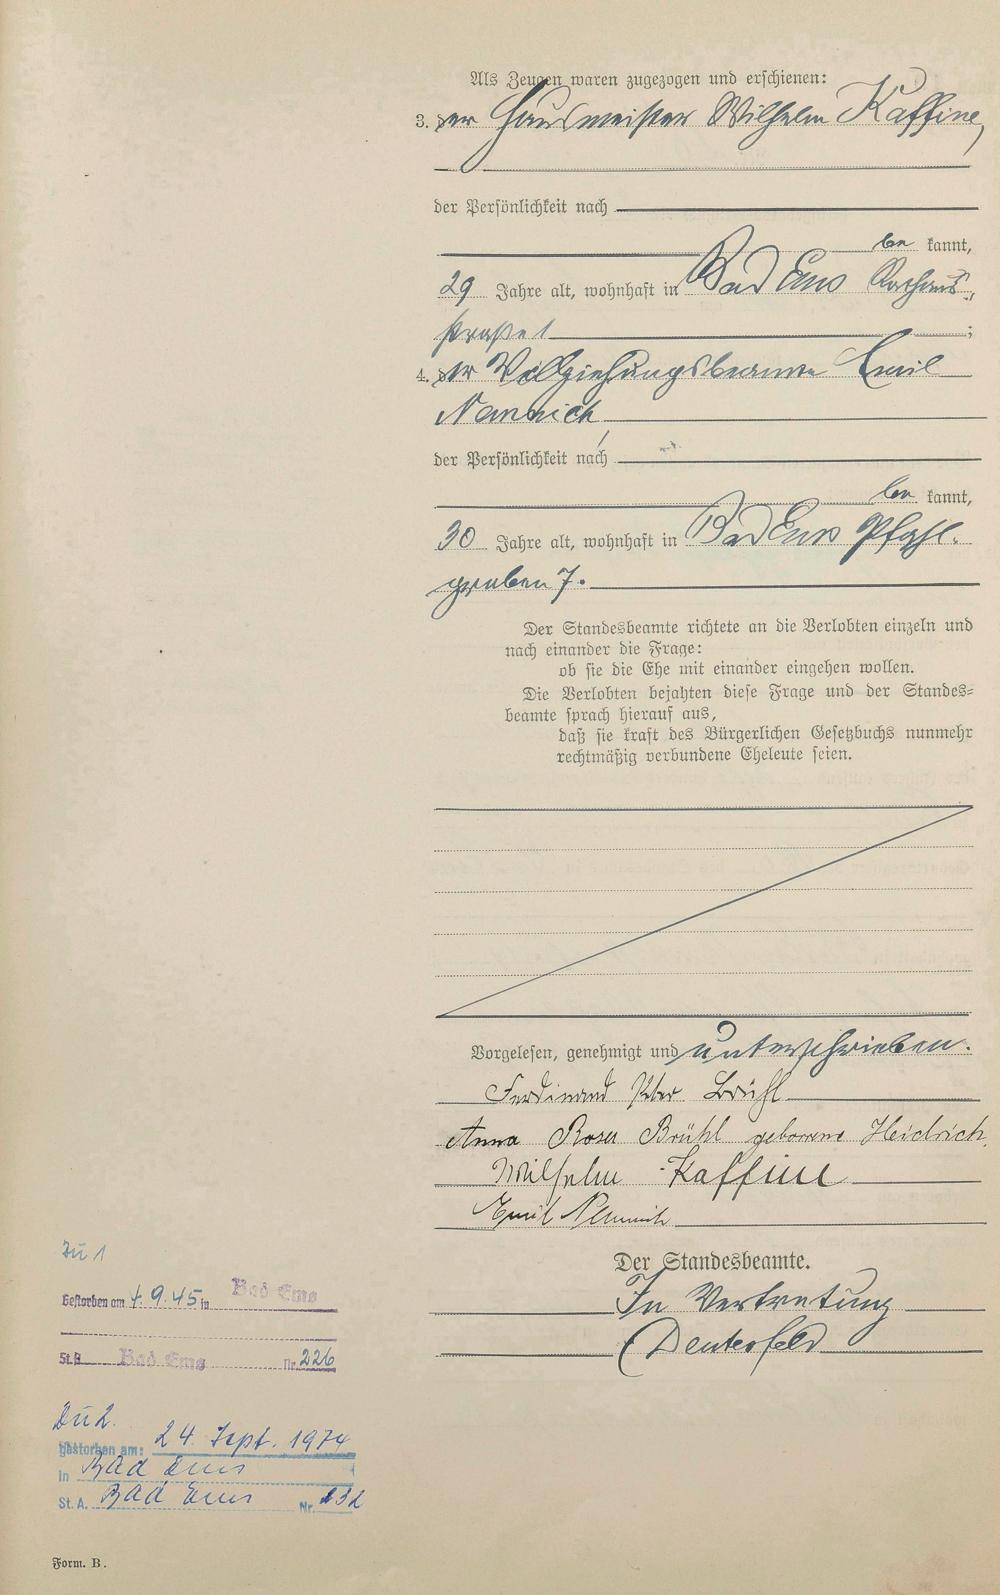 Als Zeugen waren zugezogen und erschienen:
3. der Hausmeister Wilhelm Kaffine,
der Persönlichkeit nach
be kannt,
29 Jahre alt, wohnhaft in Bad Ems Rathaus-
straße 1 ;
4. der Vollziehungsbeamte Emil
der Persönlichkeit nach
be kannt,
30 Jahre alt, wohnhaft in Bad Ems Pfahl-
graben 7.
Der Standesbeamte richtete an die Verlobten einzeln und
nach einander die Frage:
ob sie die Ehe mit einander eingehen wollen.
Die Verlobten bejahten diese Frage und der Standes=
beamte sprach hierauf aus,
daß sie kraft des Bürgerlichen Gesetzbuchs nunmehr
rechtmäßig verbundene Eheleute seien.
Vorgelesen, genehmigt und unterschrieben.
Ferdinand Peter Brühl
Anna Rosa Brühl geborene Heidrich.
Wilhelm Kaffine
Emil
Der Standesbeamte.
In Vertretung
Zu 1
Gestorben am 4.9.45 in Bad Ems
St.A. Bad Ems Nr. 226
Zu 2.
gestorben am: 24. Sept. 1974
in Bad Ems
St. A. Bad Ems Nr.
Form. B.